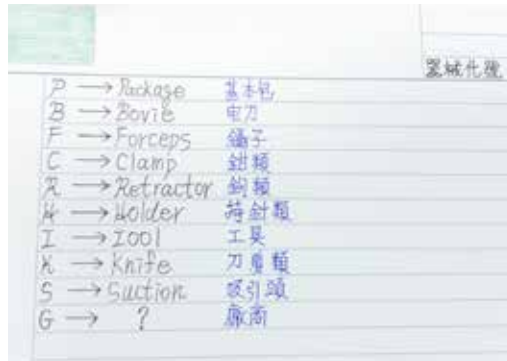 器械代號
P → Package 基本包
B → Bovie 电刀
F → Forceps 鑷子
C → Clamp 鉗類
R → Retractor 鉤類
H → Holder 持針類
I → IOOl 工具
K → Knife 刀剪類
S → Suction 吸引頭
G → ? 廠商